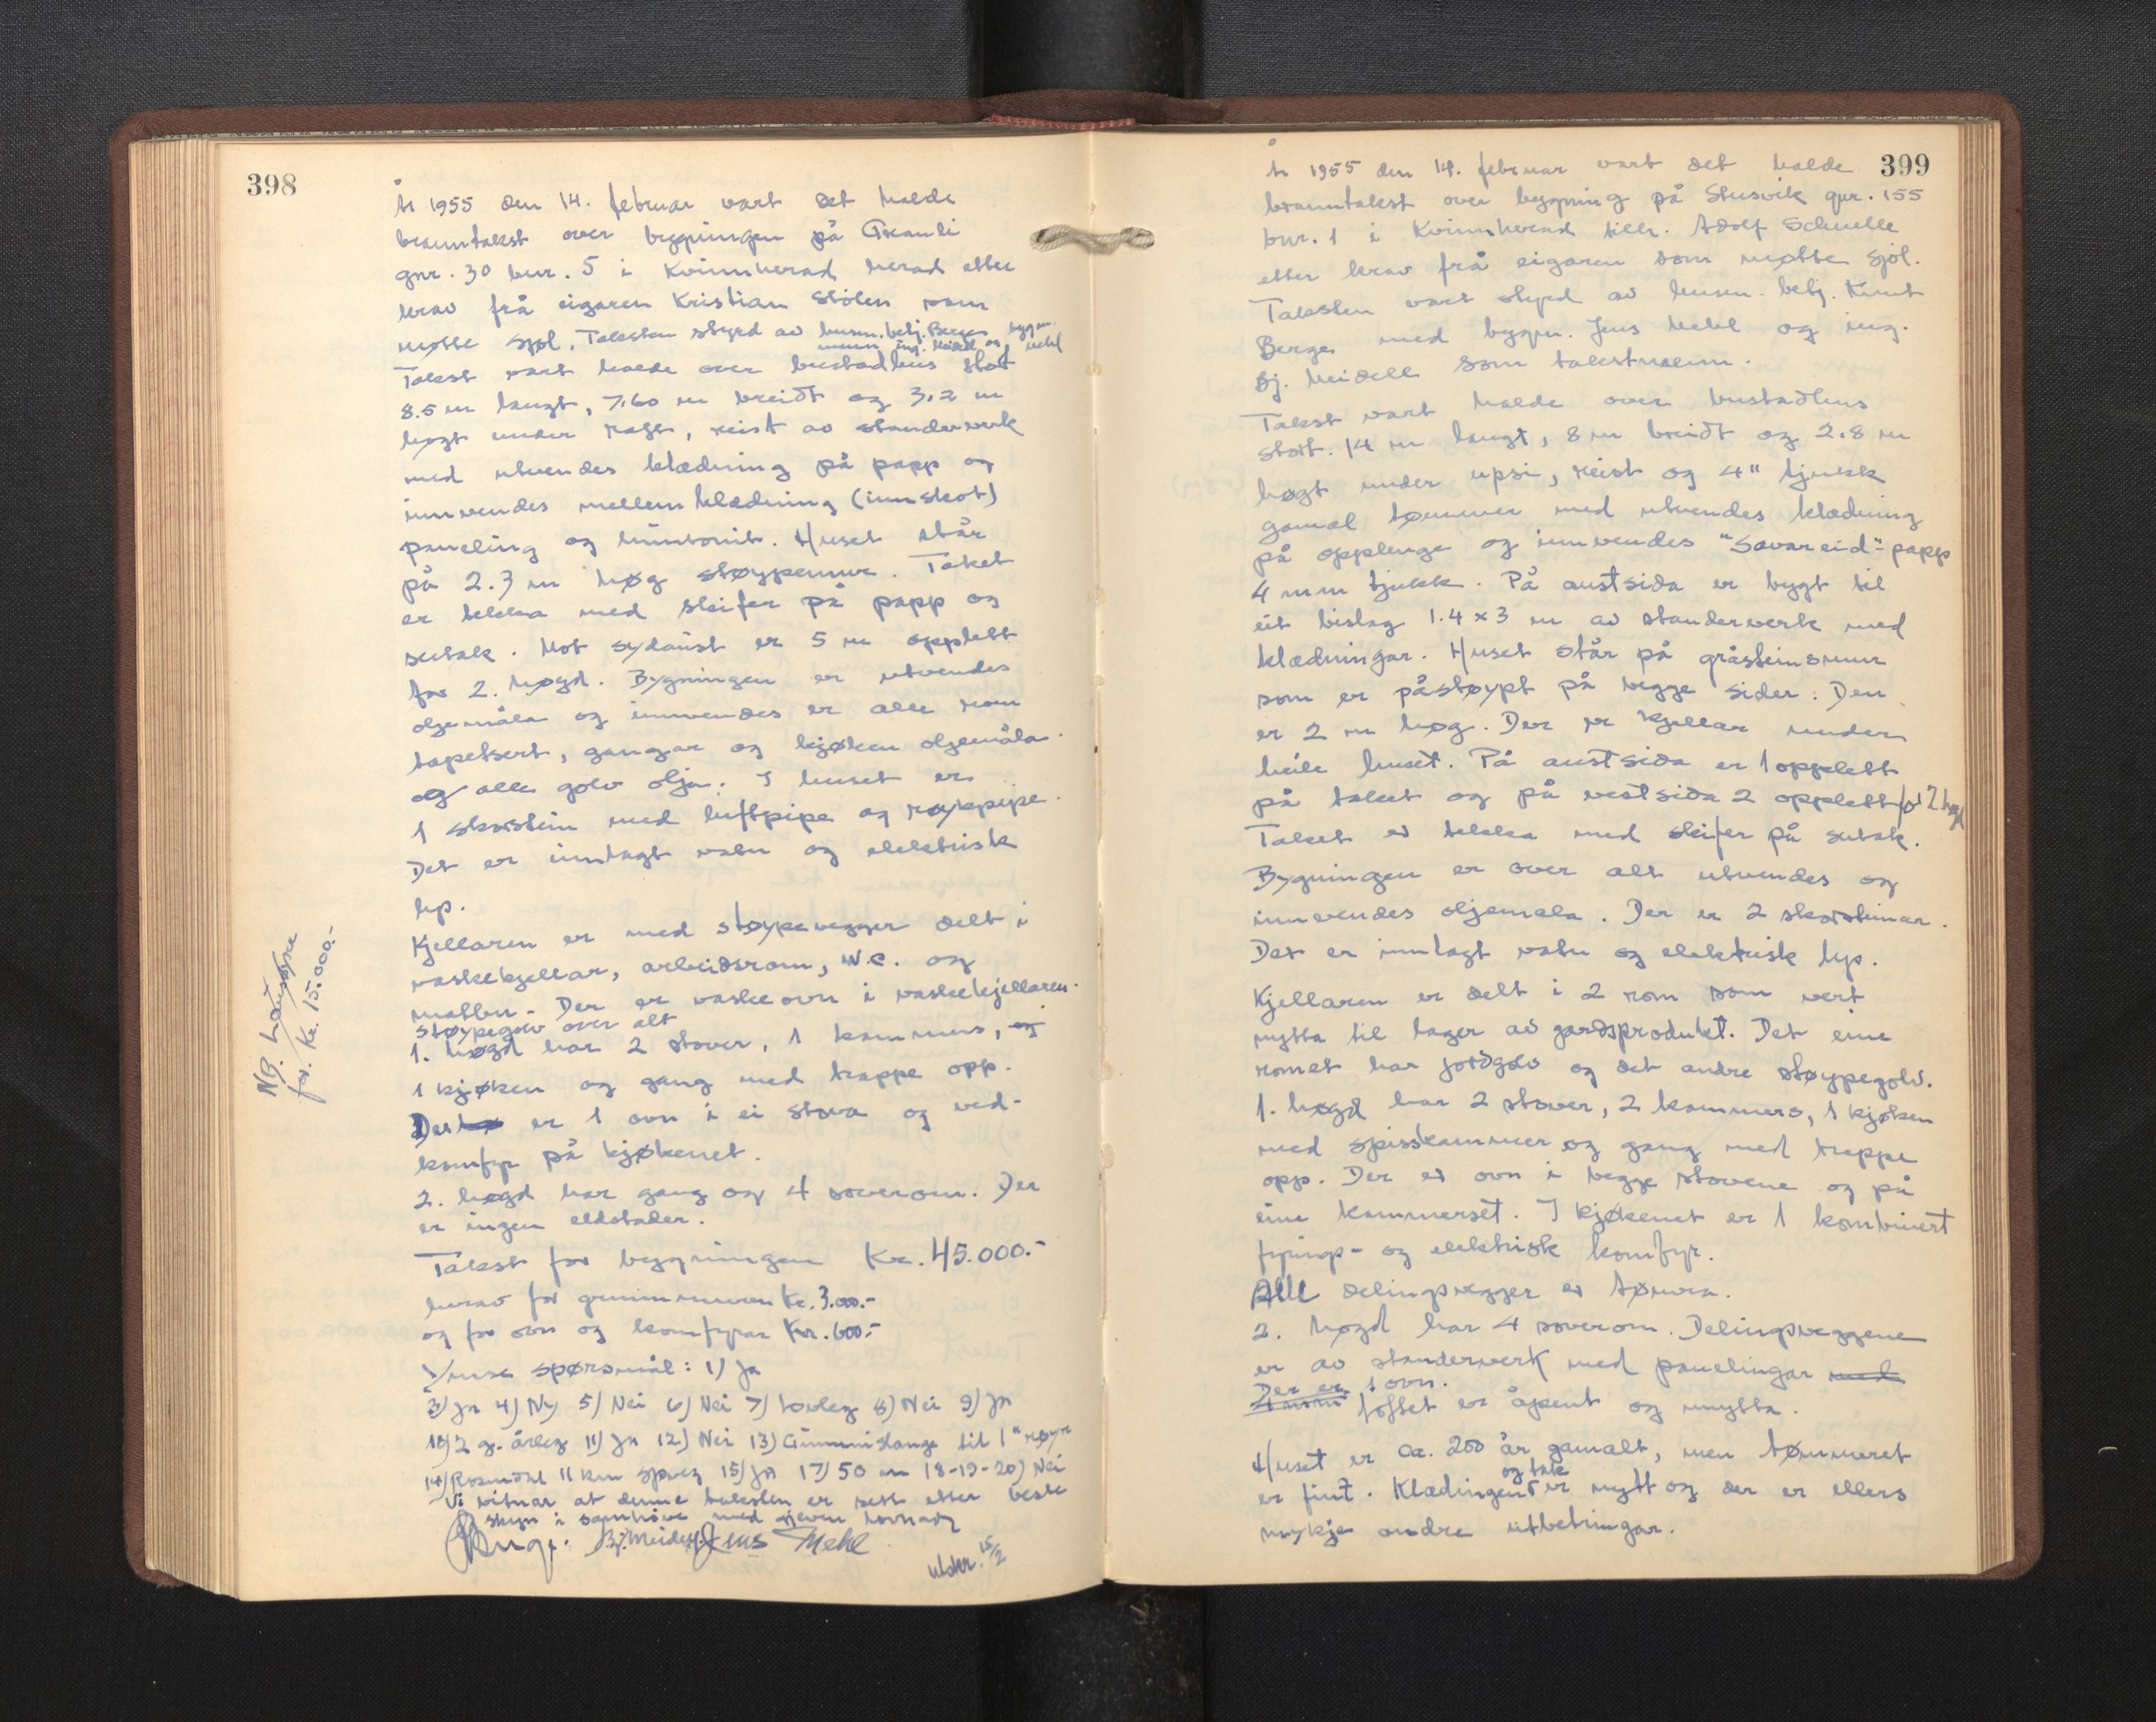 398
År 1955 den 14. februar vart det halde
branntakst over bygningen på Granli
gnr. 30 bnr. 5 i Kvinnherad herad etter
krav frå eigaren Kristian Stølen som
møtte sjøl. Taksten styrd av lensm. betj. Berge, bygm.
menn ing. Meidell og Mehl
Takst vart halde over bustadhus stort
8.5 m langt, 7.60 m breidt og 3.2 m
høgt under raft, reist av standerverk
med utvendes klædning på papp og
innvendes mellemklædning (innskot)
paneling og huntonit. Huset står
på 2.3 m høg støypemur. Taket
er tekka med skifer på papp og
sutak. Mot sydaust er 5 m opplett
for 2. høgd. Bygningen er utvendes
oljemåla og innvendes er alle rom
tapetsert, gangar og kjøken oljemåla.
og alle golv olja. I huset er
1 skorstein med luftpipe og røykpipe.
Det er innlagt vatn og elektrisk
lys.
Kjellaren er med støypevegger delt i
vaskekjellar, arbeidsrom, w.c. og
matbu. Der er vaskeovn i vaskekjellaren.
støypegolv over alt
1. høgd har 2 stover, 1 kammers, og
1 kjøken og gang med trappe opp.
Der er 1 ovn i ei stova og ved-
komfyr på kjøkenet.
2. høgd har gang og 4 soverom. Der
er ingen eldstader.
Takst for bygningen Kr. 45.000.-
herav for grunnmuren Kr. 3.000.-
og for ovn og komfyrar Kr. 600.-
Ymse spørsmål: 1) Ja
3) Ja 4) Ny 5) Nei 6) Nei 7) Lovleg 8) Nei 9) Ja
10) 2 g. årleg 11) Ja 12) Nei 13) Gummislange til 1" røyr
14) Rosendal 11 km 15) Ja 17) 50 m 18-19-20) Nei
Vi vitnar at denne taksten er sett etter beste
skyn i samhøve med gjeven lovnad
Berge. Bj. Meidell Jens Mehl
Utskr. 15/2
NB. Låneøkse
for Kr. 15.000.-
399
År 1955 den 14. februar vart det halde
branntakst over bygning på Stusvik gnr. 155
bnr. 1 i Kvinnherad tilh. Adolf Schnelle
etter krav frå eigaren som møtte sjøl.
Taksten vart styrd av lensm. betj. Knut
Berge med bygm. Jens Mehl og ing.
Bj. Meidell som takstmenn.
Takst vart halde over bustadhus
stort. 14 m langt, 8 m breidt og 2.8 m
høgt under upsi, reist og 4" tjukk
gamal tømmer med utvendes klædning
på opplenge og innvendes "Savareid"-papp
4 mm tjukk. På austsida er bygt til
eit bislag 1.4 x 3 m av standerverk med
klædningar. Huset står på gråsteinsmur
som er påstøypt på begge sider. Den
er 2 m høg. Der er kjellar under
heile huset. På austsida er 1 opplett
på taket og på vestsida 2 opplett for 2 høgd
Taket er tekka med skifer på sutak.
Bygningen er over alt utvendes og
innvendes oljemala. Der er 2 skorsteinar.
Det er innlagt vatn og elektrisk lys.
Kjellaren er delt i 2 rom som vert
nytta til lager av gardsprodukt. Det eine
romet har jordgolv og det andre støypegolv.
1. høgd har 2 stover, 2 kammers, 1 kjøken
med spisskammer og gang med trappe
opp. Der er ovn i begge stovene og på
eine kammerset. I kjøkenet er 1 kombinert
fyrings- og elektrisk komfyr.
Alle delingsvegger er tømra.
2. høgd har 4 soverom. Delingsveggene
er av standerverk med panelingar med
Der er 1 ovn.
4 mm loftet er åpent og unytta.
Huset er ca. 200 år gamalt, men tømmeret
og tak
er fint. Klædingent er nytt og der er ellers
mykje andre utbetringar.